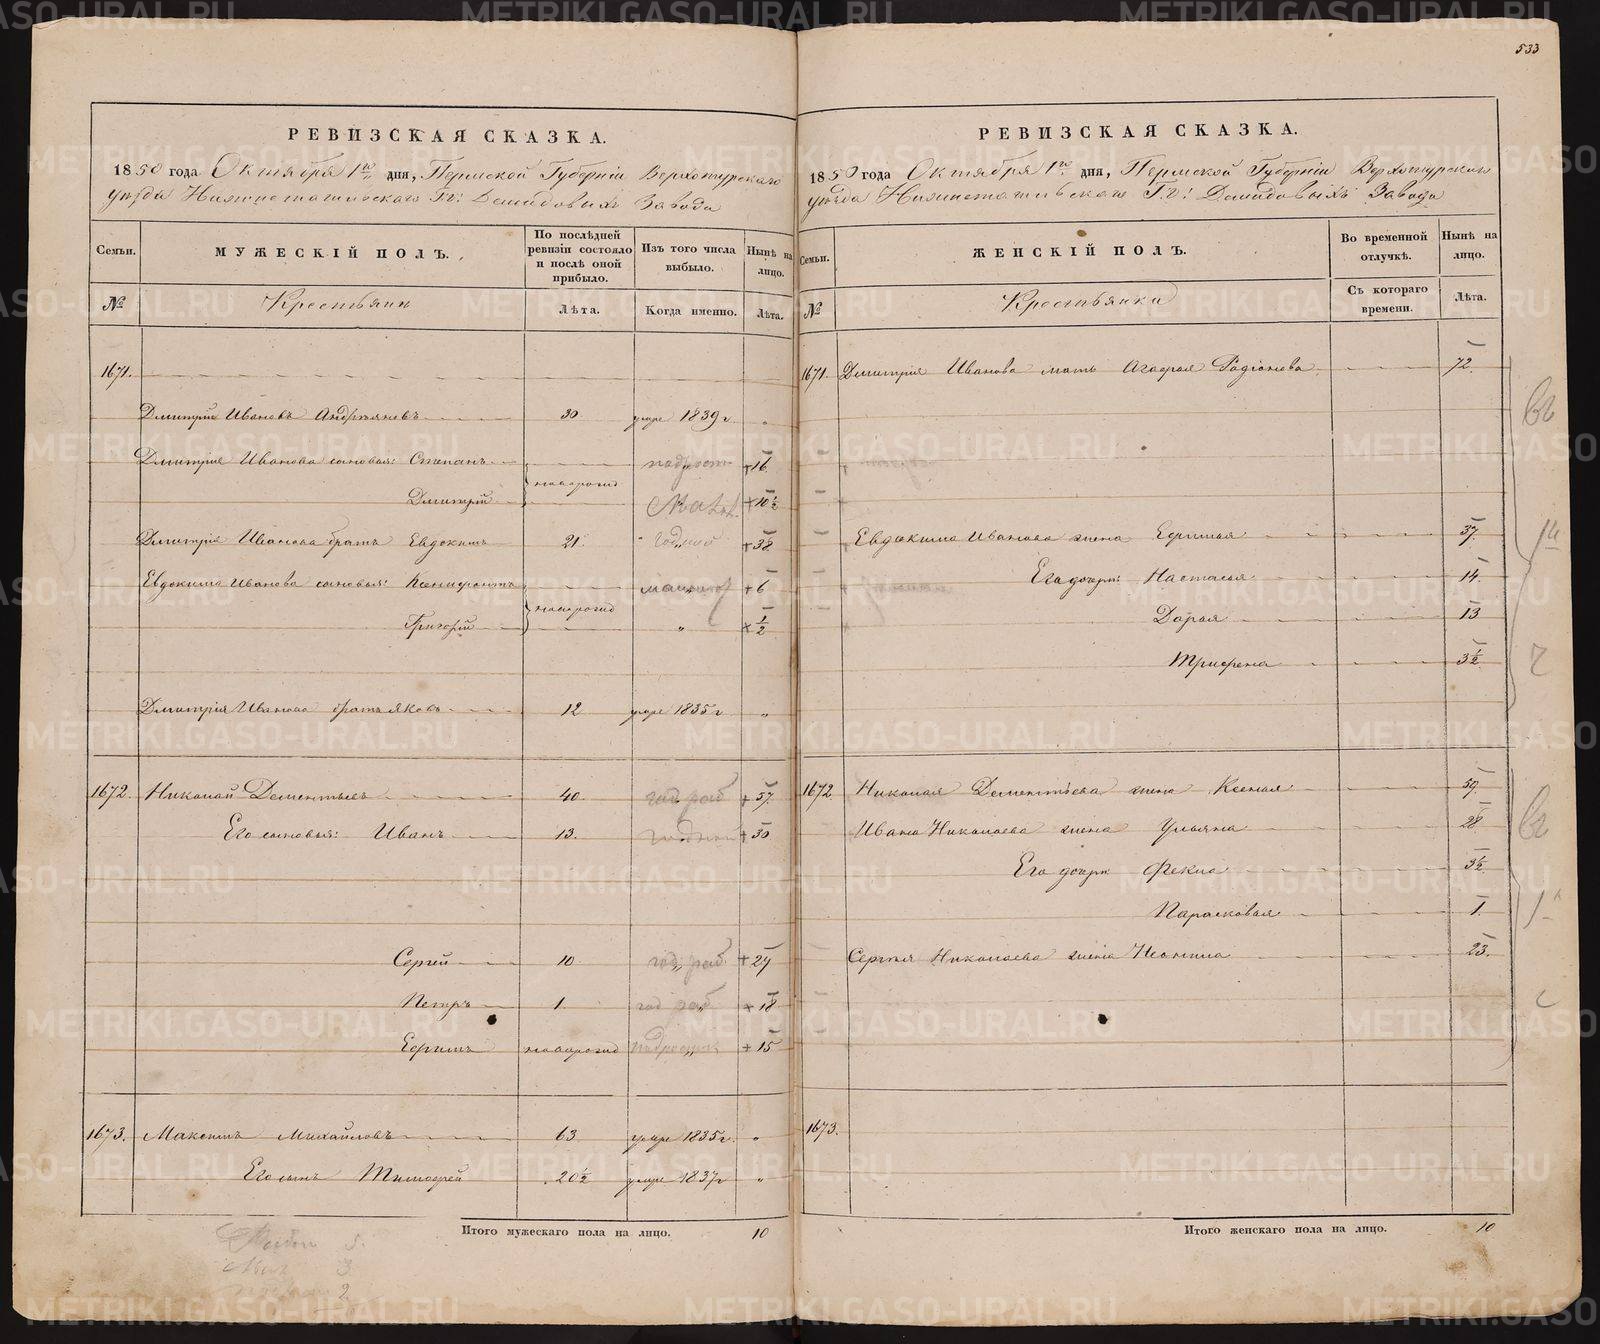 533
РЕВИЗСКАЯ СКАЗКА.
1850 года Октября 1го дня, Пермской Губерніи Верхотурскаго
уѣзда Нижнетагильскаго Гг: Демидовыхъ Завода
Семьи.
МУЖЕСКІЙ ПОЛЪ.
По послѣдней ревизіи состояло и послѣ оной прибыло.
Изъ того числа выбыло.
Нынѣ на лицо.
№
Крестьянъ
Лѣта.
Когда именно.
Лѣта.
1671.
Дмитрій Ивановъ Андреяновъ 30 умре 1839 г. „
Дмитрія Иванова сыновья: Степанъ новорожд подрост +16.
Дмитрій Мал. +10½
Дмитрія Иванова братъ Евдокимъ 21. годной +38
Евдокима Иванова сыновья: Ксенофонтъ новорожд малолет +6
Григорій „ +½
Дмитрія Иванова братъ Яковъ 12 умре 1835 г „
1672. Николай Дементьевъ 40. год раб +57.
Его сыновья: Иванъ 13. годной +30
Сергей 10 год раб +27
Петръ 1. год раб +18
Ефимъ новорожд подросток +15
1673. Максимъ Михайловъ 63 умре 1835 г. „
Его сынъ Тимофей 20½ умре 1837 г „
Итого мужескаго пола на лицо. 10
5.
Мал 3
2
РЕВИЗСКАЯ СКАЗКА.
1850 года Октября 1го дня, Пермской Губерніи Верхотурскаго
уѣзда Нижнетагильскаго Гг: Демидовыхъ Завода
Семьи.
ЖЕНСКІЙ ПОЛЪ.
Во временной отлучкѣ.
Нынѣ на лицо.
№
Крестьянки
Съ котораго времени.
Лѣта.
1671. Дмитрія Иванова мать Агафья Родіонова 72.
Евдокима Иванова жена Ефимья 37.
Его дочери: Настасья 14.
Дарья 13
Трифена 3½
1672. Николая Дементьева жена Ксенья 59
Ивана Николаева жена Ульяна 28
Его дочери Фекла 3½
Парасковья 1.
Сергея Николаева жена Неонила 23.
1673.
Итого женскаго пола на лицо. 10
METRIKI.GASO-URAL.RU